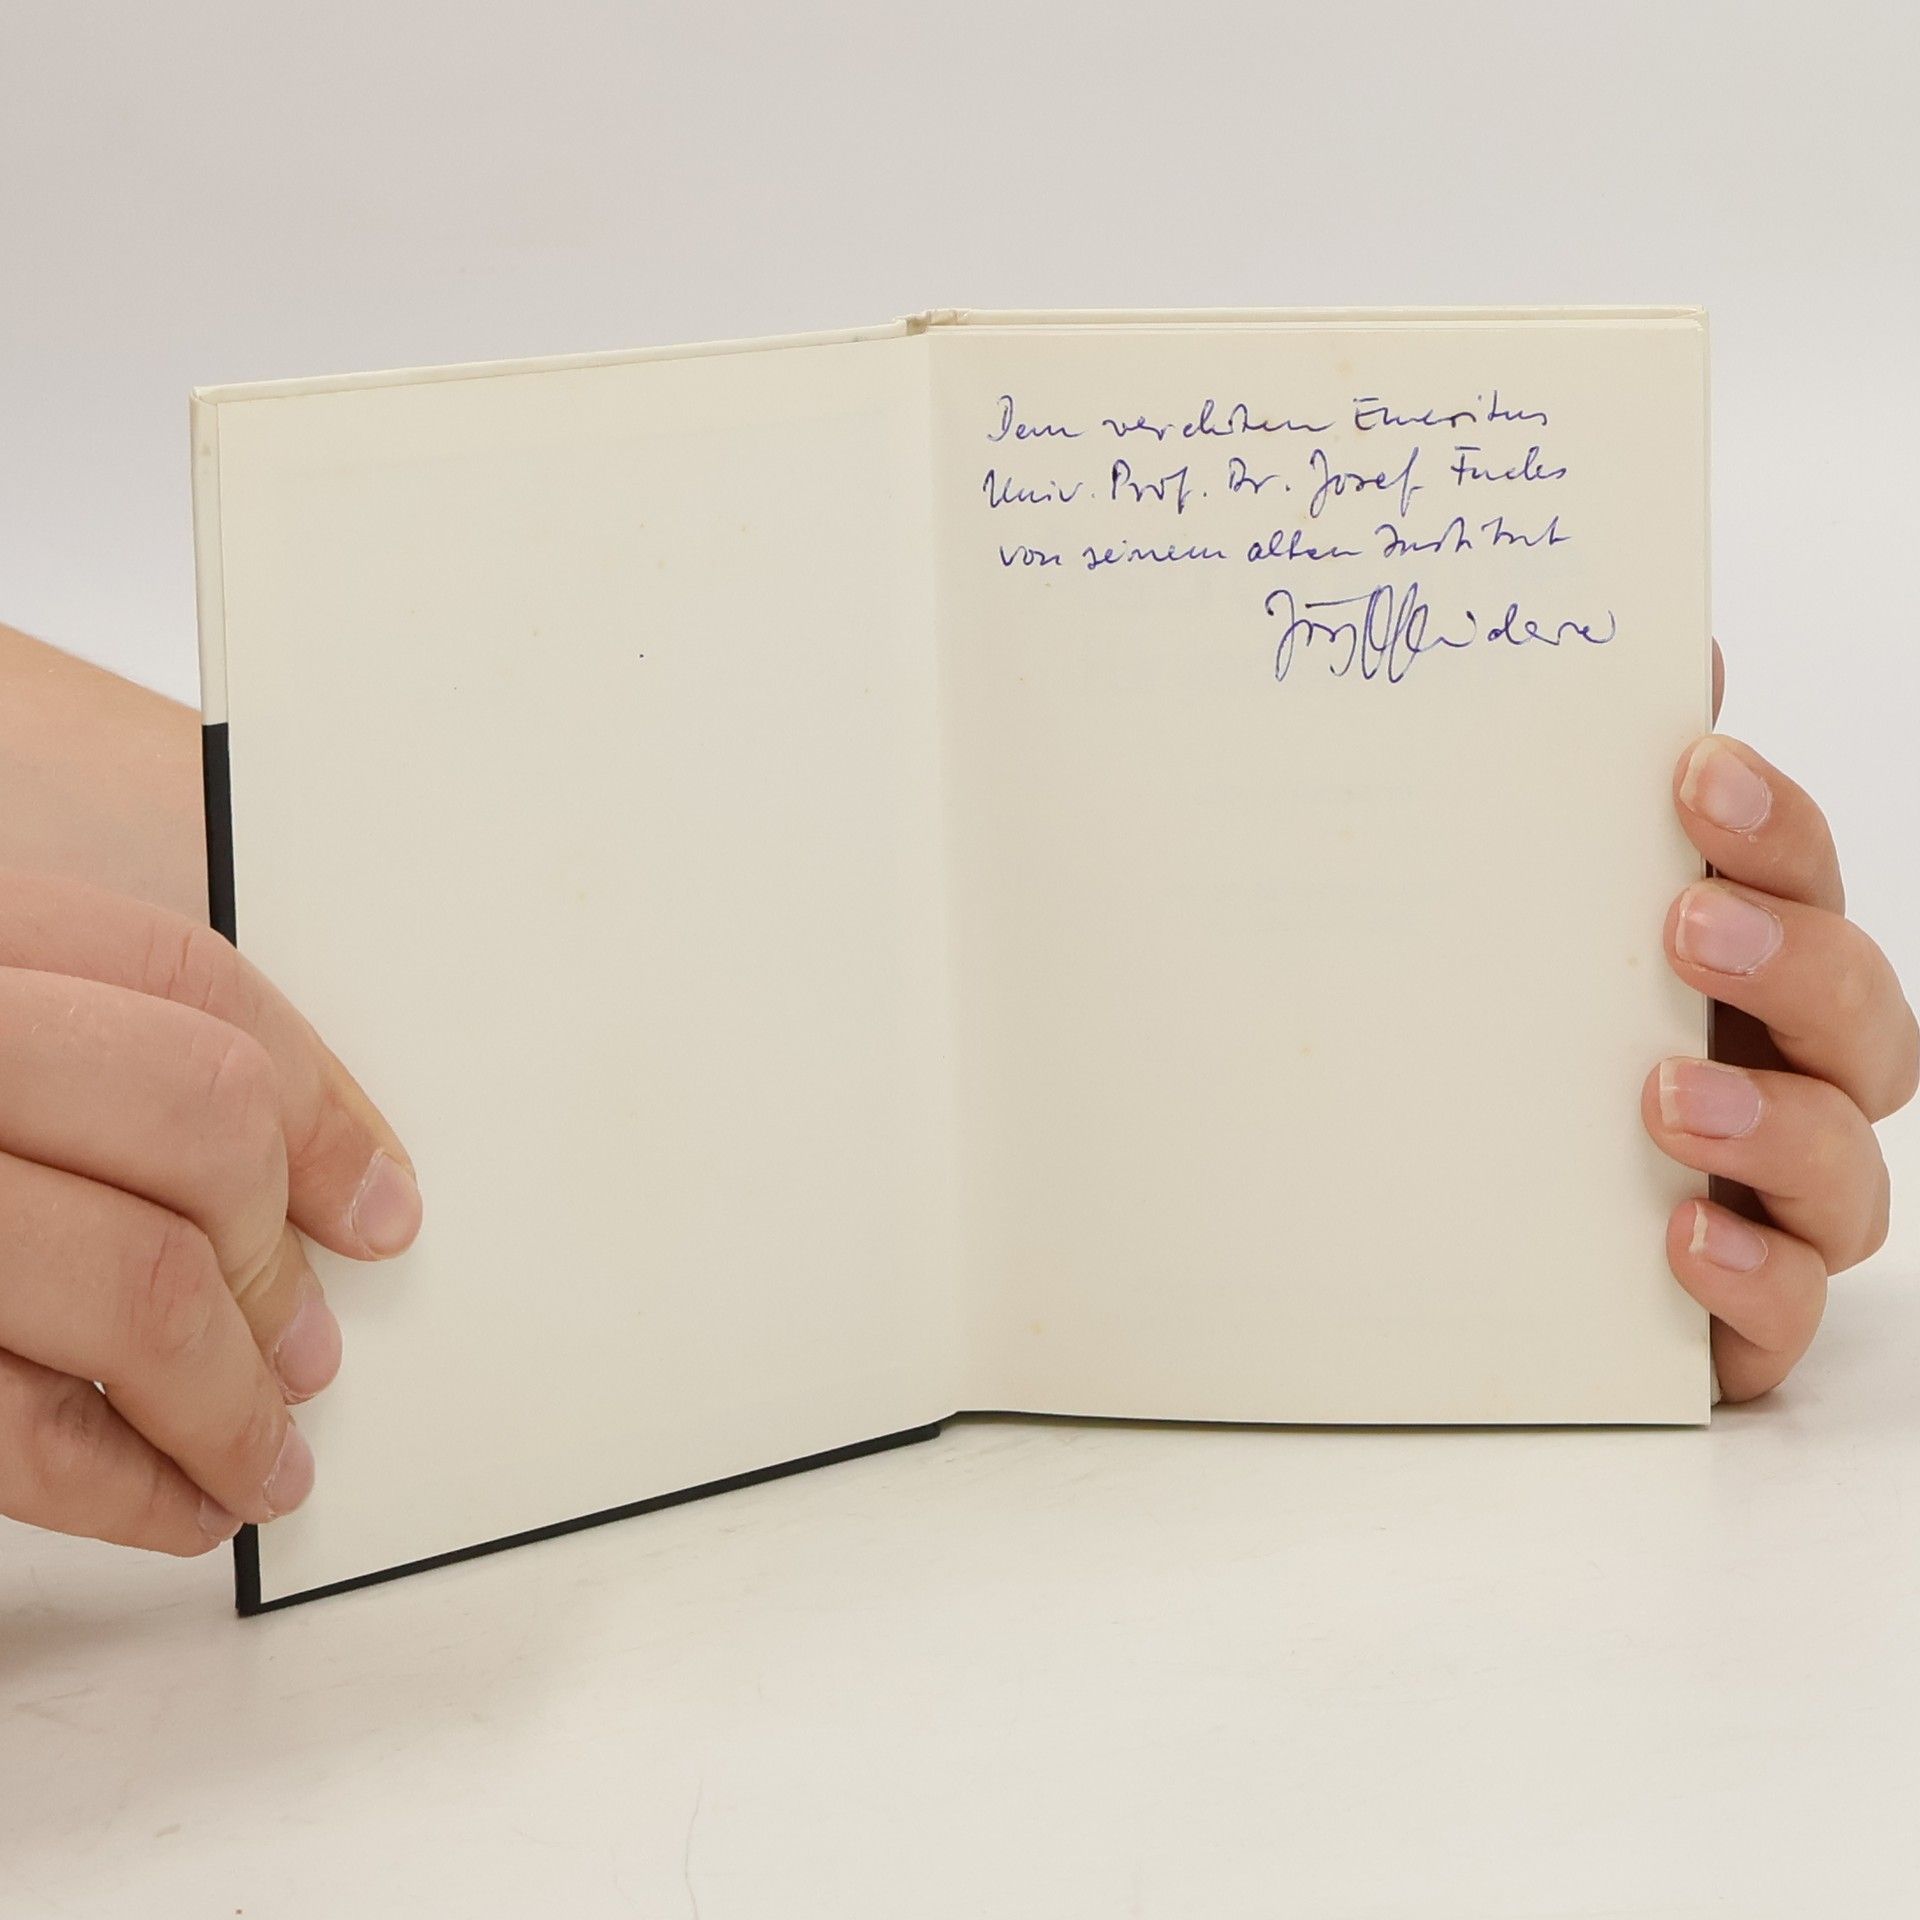 Dem verehrten Emeritus
Univ. Prof. Dr. Josef Fuchs
von seinem alten Institut
Jörg